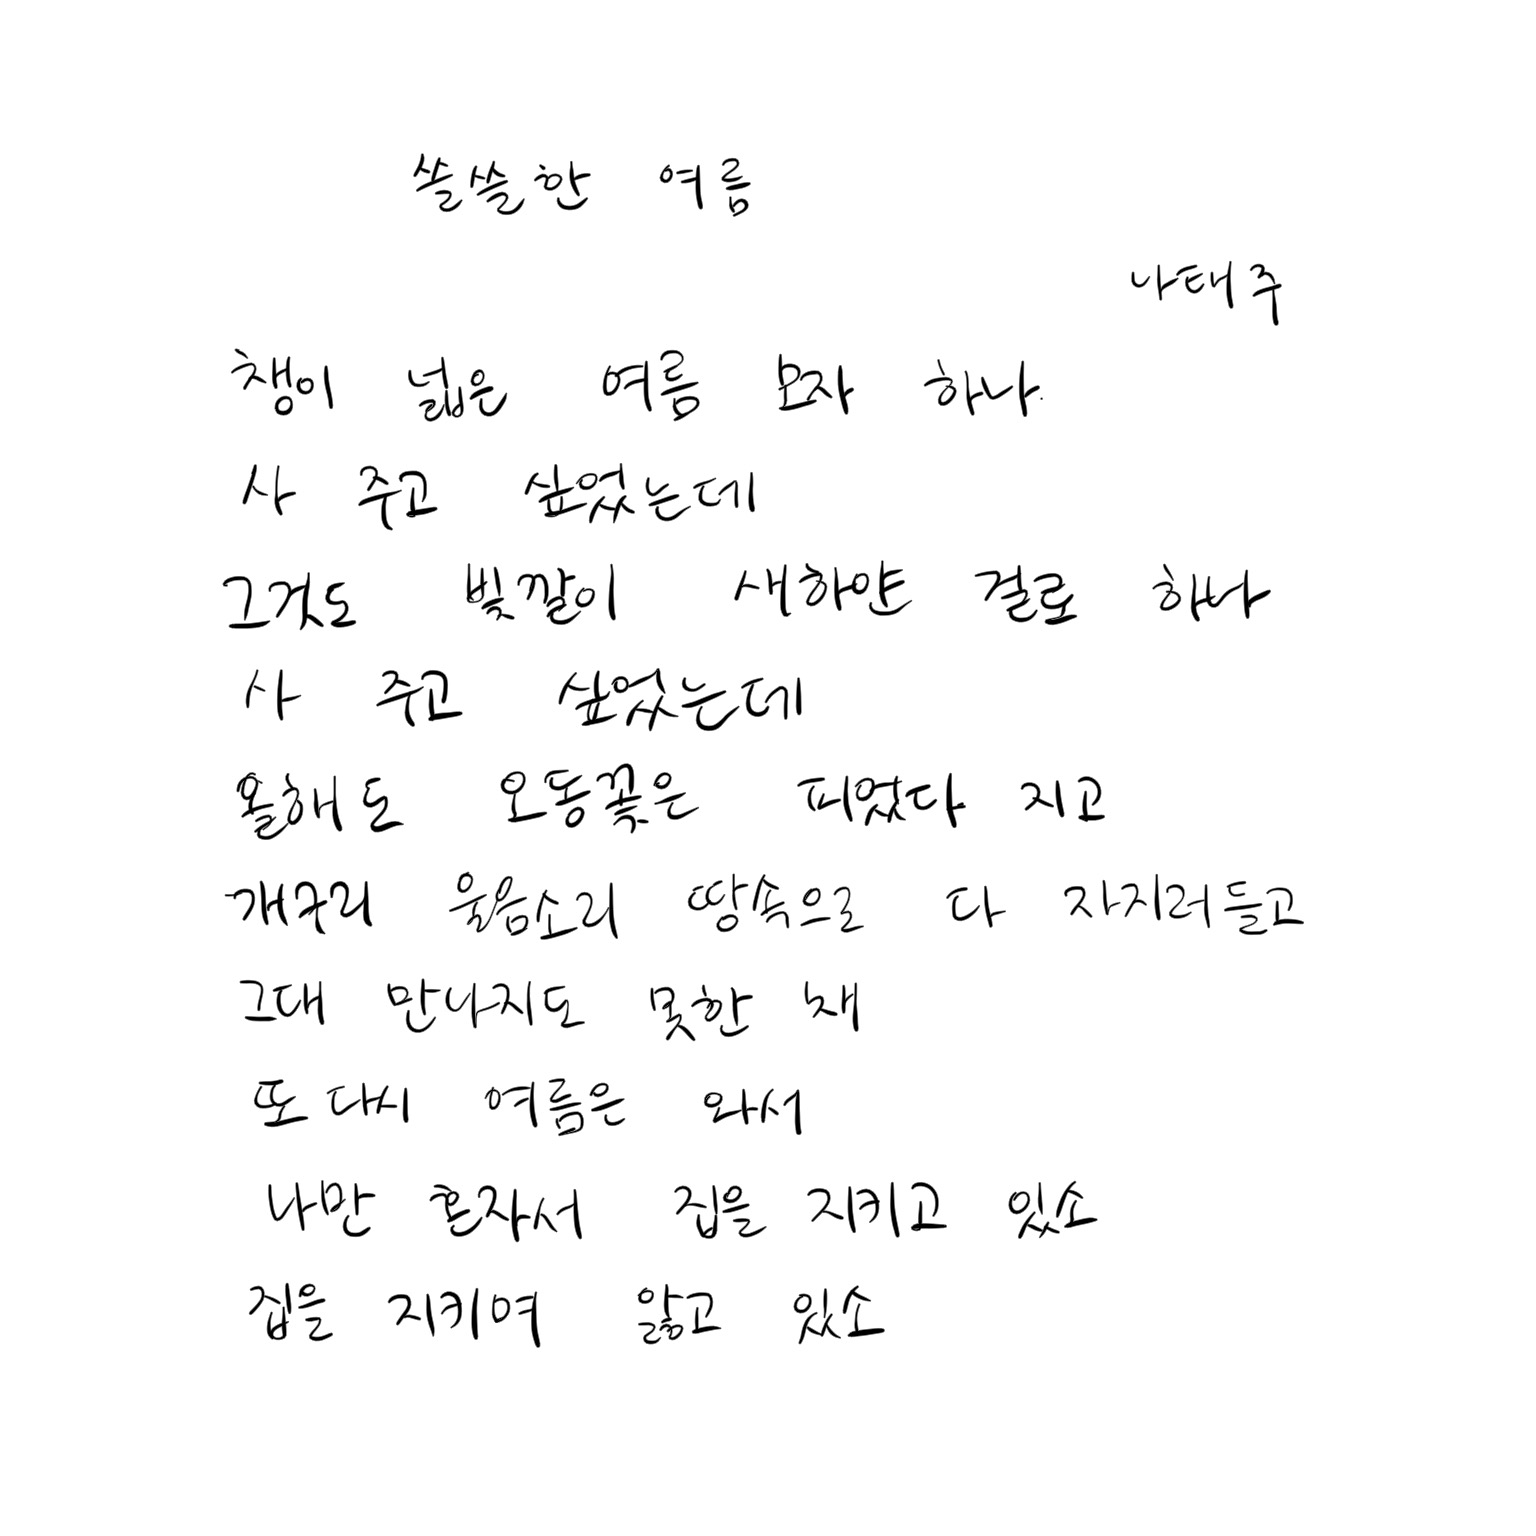 쓸쓸한 여름
나태주
챙이 넓은 여름 모자 하나
사 주고 싶었는데
그것도 빛깔이 새하얀 걸로 하나
사 주고 싶었는데
올해도 오동꽃은 피었다 지고
개구리 울음소리 땅속으로 다 자지러들고
그대 만나지도 못한 채
또 다시 여름은 와서
나만 혼자서 집을 지키고 있소
집을 지키여 앓고 있소